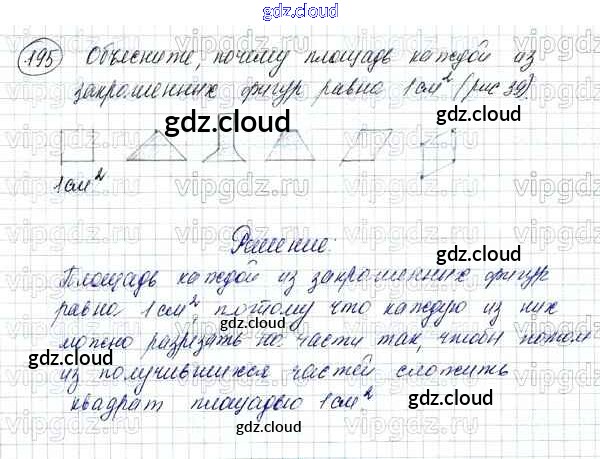 gdz.cloud
195 Объясните, почему площадь каждой из
закрашенных фигур равна 1 см² (рис 39).
gdz.cloud
gdz.cloud
1 см²
Решение:
gdz.cloud
Площадь каждой из закрашенных фигур
равна 1 см², потому что каждую из них
gdz.cloud
можно разрезать на части так, чтобы потом
gdz.cloud
gdz.cloud
из получившихся частей сложить
квадрат площадью 1 см².
gdz.cloud
gdz.cloud